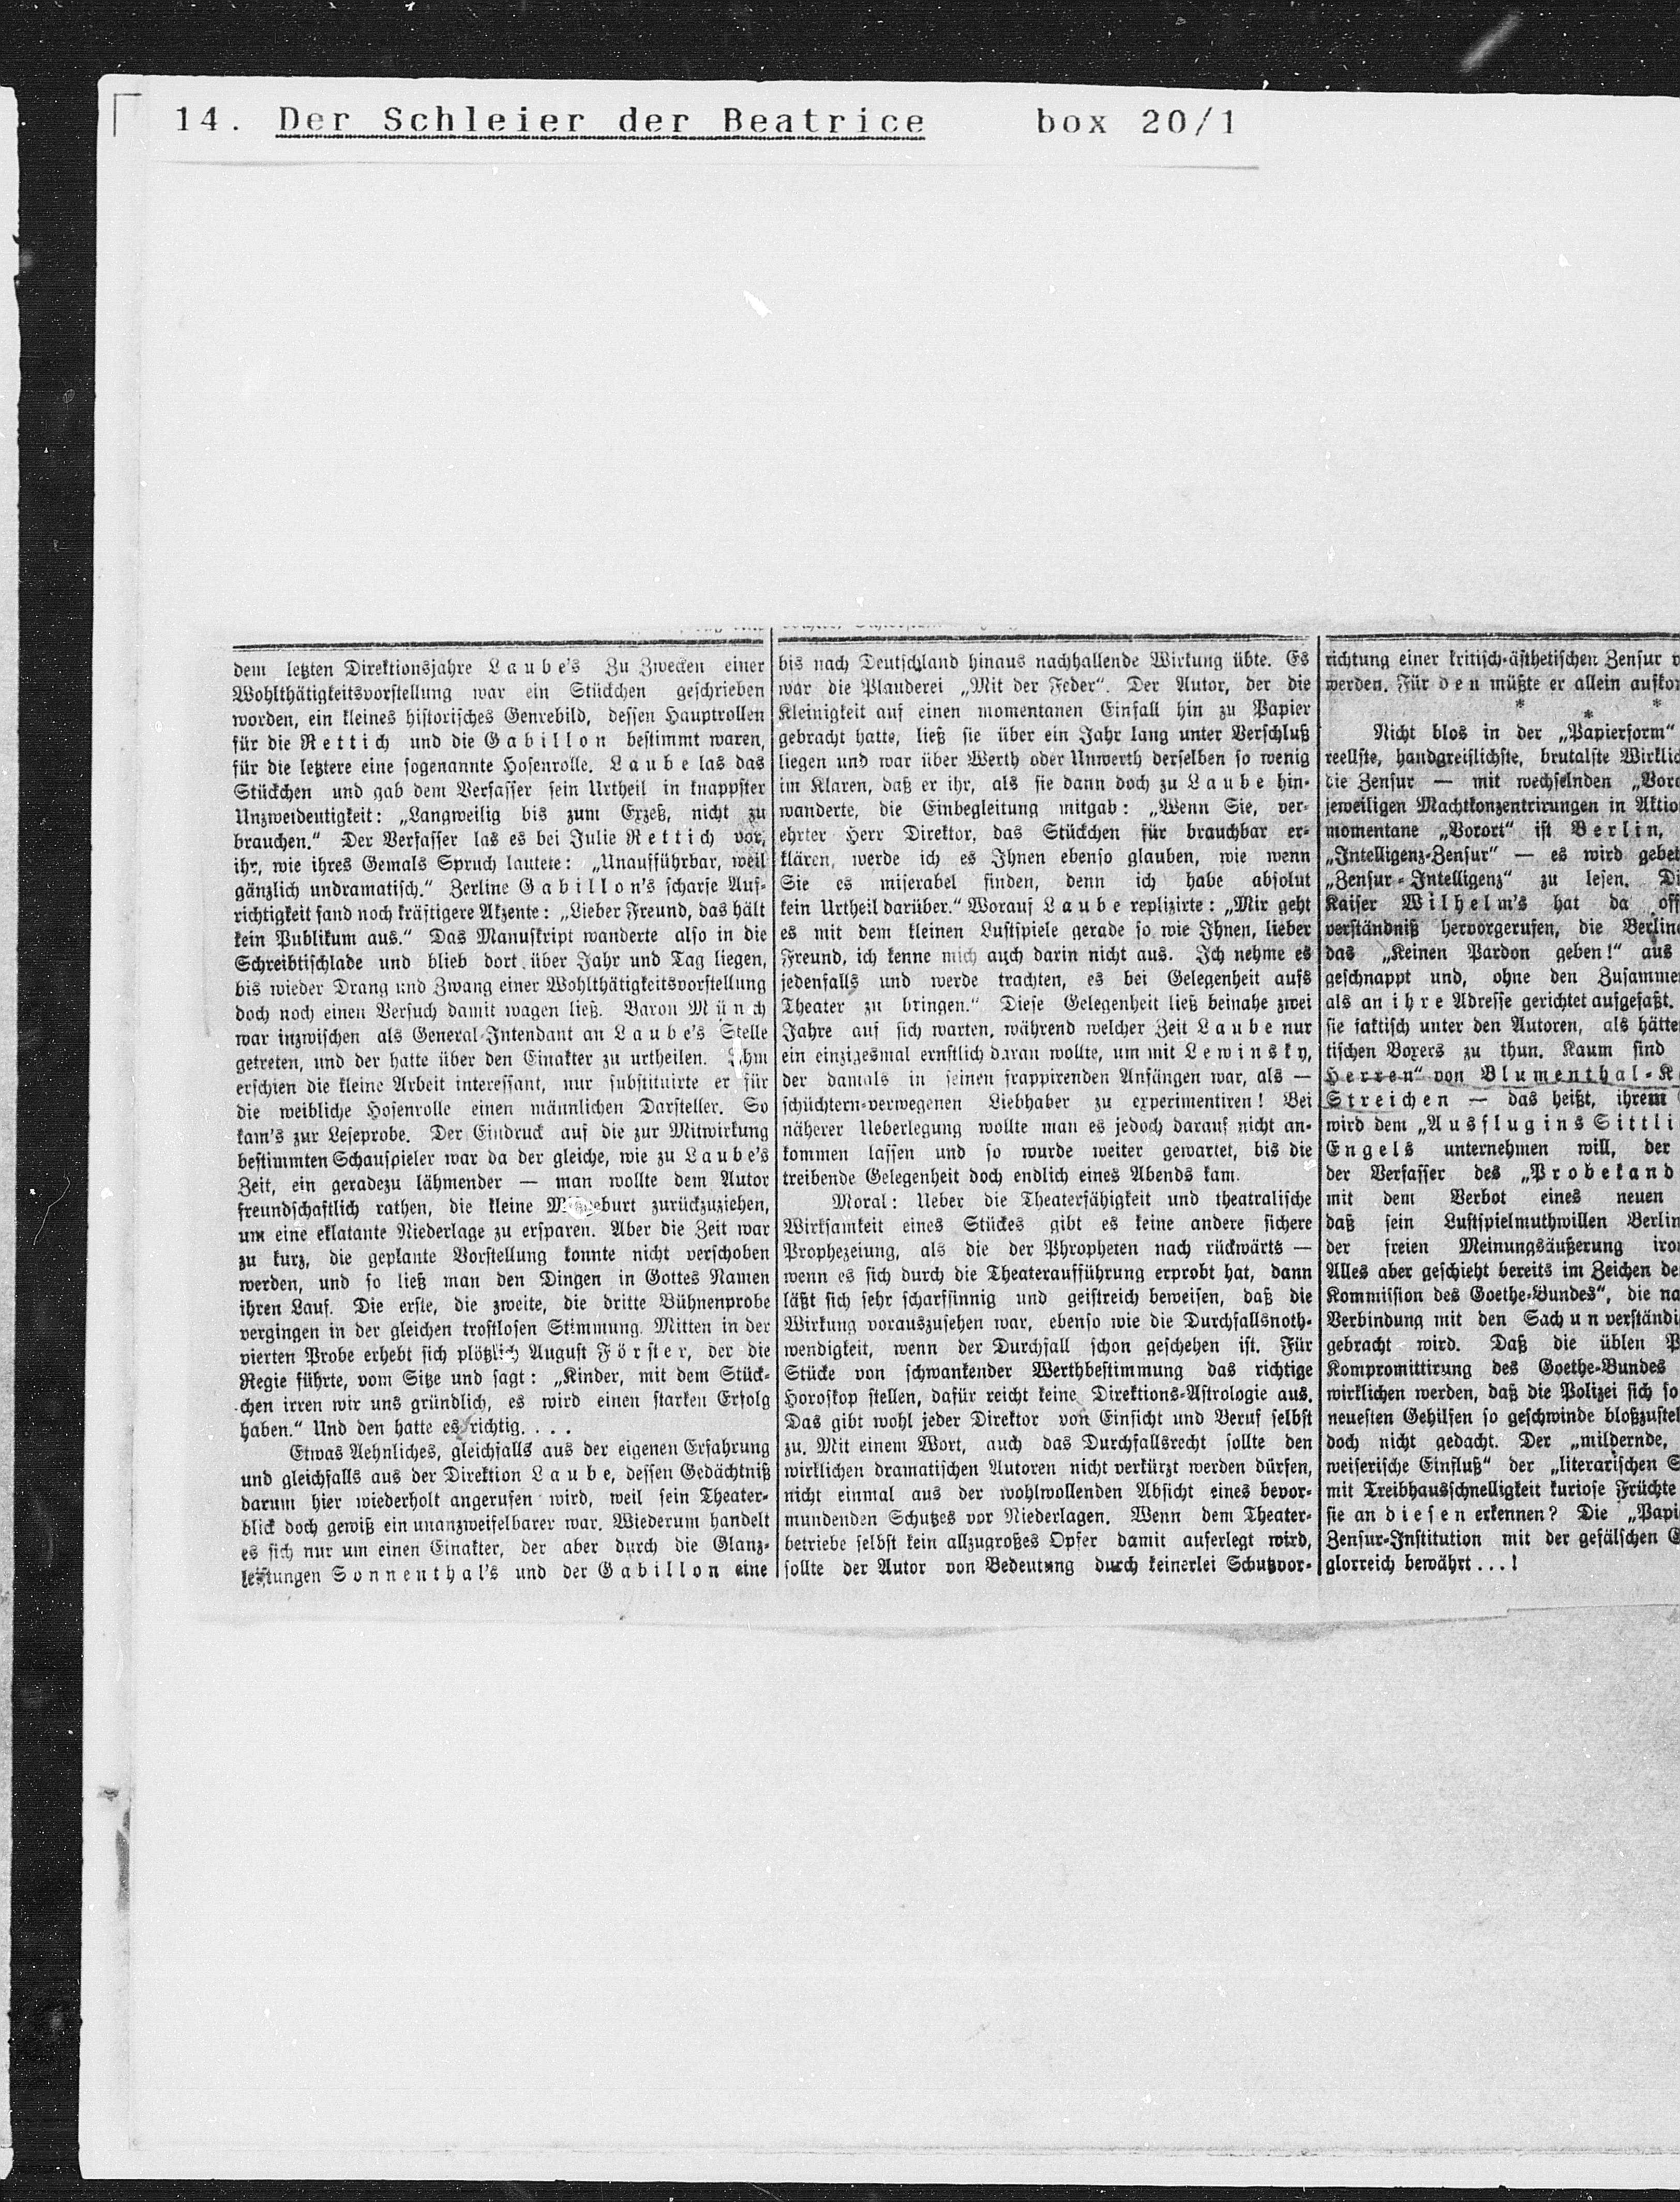 14. Der Schleier der Beatrice box 20/1
dem letzten Direktionsjahre Laube's Zu Zwecken einer
Wohlthätigkeitsvorstellung war ein Stückchen geschrieben
worden, ein kleines historisches Genrebild, dessen Hauptrollen
für die Rettich und die Gabillon bestimmt waren,
für die letztere eine sogenannte Hosenrolle. Laube las das
Stückchen und gab dem Verfasser sein Urtheil in knappster
Unzweideutigkeit: „Langweilig bis zum Exzeß, nicht zu
brauchen.“ Der Verfasser las es bei Julie Rettich vor,
ihr, wie ihres Gemals Spruch lautete: „Unaufführbar, weil
gänzlich undramatisch.“ Zerline Gabillon's scharfe Auf-
richtigkeit fand noch kräftigere Akzente: „Lieber Freund, das hält
kein Publikum aus.“ Das Manuskript wanderte also in die
Schreibtischlade und blieb dort über Jahr und Tag liegen,
bis wieder Drang und Zwang einer Wohlthätigkeitsvorstellung
doch noch einen Versuch damit wagen ließ. Baron Münch
war inzwischen als General-Intendant an Laube's Stelle
getreten, und der hatte über den Einakter zu urtheilen. Ihm
erschien die kleine Arbeit interessant, nur substituirte er für
die weibliche Hosenrolle einen männlichen Darsteller. So
kam's zur Leseprobe. Der Eindruck auf die zur Mitwirkung
bestimmten Schauspieler war da der gleiche, wie zu Laube's
Zeit, ein geradezu lähmender — man wollte dem Autor
freundschaftlich rathen, die kleine zurückzuziehen,
um eine eklatante Niederlage zu ersparen. Aber die Zeit war
zu kurz, die geplante Vorstellung konnte nicht verschoben
werden, und so ließ man den Dingen in Gottes Namen
ihren Lauf. Die erste, die zweite, die dritte Bühnenprobe
vergingen in der gleichen trostlosen Stimmung. Mitten in der
vierten Probe erhebt sich plötzlich August Förster, der die
Regie führte, vom Sitze und sagt: „Kinder, mit dem Stück-
chen irren wir uns gründlich, es wird einen starken Erfolg
haben.“ Und den hatte es richtig. . . .
Etwas Aehnliches, gleichfalls aus der eigenen Erfahrung
und gleichfalls aus der Direktion Laube, dessen Gedächtniß
darum hier wiederholt angerufen wird, weil sein Theater-
blick doch gewiß ein unanzweifelbarer war. Wiederum handelt
es sich nur um einen Einakter, der aber durch die Glanz-
leistungen Sonnenthal's und der Gabillon eine
bis nach Deutschland hinaus nachhallende Wirkung übte. Es
war die Plauderei „Mit der Feder“. Der Autor, der die
Kleinigkeit auf einen momentanen Einfall hin zu Papier
gebracht hatte, ließ sie über ein Jahr lang unter Verschluß
liegen und war über Werth oder Unwerth derselben so wenig
im Klaren, daß er ihr, als sie dann doch zu Laube hin-
wanderte, die Einbegleitung mitgab: „Wenn Sie, ver-
ehrter Herr Direktor, das Stückchen für brauchbar er-
klären, werde ich es Ihnen ebenso glauben, wie wenn
Sie es miserabel finden, denn ich habe absolut
kein Urtheil darüber.“ Worauf Laube replizirte: „Mir geht
es mit dem kleinen Lustspiele gerade so wie Ihnen, lieber
Freund, ich kenne mich auch darin nicht aus. Ich nehme es
jedenfalls und werde trachten, es bei Gelegenheit aufs
Theater zu bringen.“ Diese Gelegenheit ließ beinahe zwei
Jahre auf sich warten, während welcher Zeit Laube nur
ein einzigesmal ernstlich daran wollte, um mit Lewinsky,
der damals in seinen frappirenden Anfängen war, als —
schüchtern-verwegenen Liebhaber zu experimentiren! Bei
näherer Ueberlegung wollte man es jedoch darauf nicht an-
kommen lassen und so wurde weiter gewartet, bis die
treibende Gelegenheit doch endlich eines Abends kam.
Moral: Ueber die Theaterfähigkeit und theatralische
Wirksamkeit eines Stückes gibt es keine andere sichere
Prophezeiung, als die der Phropheten nach rückwärts —
wenn es sich durch die Theateraufführung erprobt hat, dann
läßt sich sehr scharfsinnig und geistreich beweisen, daß die
Wirkung vorauszusehen war, ebenso wie die Durchfallsnoth-
wendigkeit, wenn der Durchfall schon geschehen ist. Für
Stücke von schwankender Werthbestimmung das richtige
Horoskop stellen, dafür reicht keine Direktions-Astrologie aus.
Das gibt wohl jeder Direktor von Einsicht und Beruf selbst
zu. Mit einem Wort, auch das Durchfallsrecht sollte den
wirklichen dramatischen Autoren nicht verkürzt werden dürfen,
nicht einmal aus der wohlwollenden Absicht eines bevor-
mundenden Schutzes vor Niederlagen. Wenn dem Theater-
betriebe selbst kein allzugroßes Opfer damit auferlegt wird,
sollte der Autor von Bedeutung durch keinerlei Schutzvor-
richtung einer kritisch-ästhetischen Zensur
werden. Für den müßte er allein
* * *
Nicht blos in der „Papierform“
reellste, handgreiflichste, brutalste
die Zensur — mit wechselnden
jeweiligen Machtkonzentrirungen in
momentane „Vorort“ ist Berlin,
„Intelligenz-Zensur“ — es wird
„Zensur-Intelligenz“ zu lesen.
Kaiser Wilhelm's hat da
verständniß hervorgerufen, die
das „Keinen Pardon geben!“ aus
geschnappt und, ohne den
als an ihre Adresse gerichtet aufgefaßt.
sie faktisch unter den Autoren, als
tischen Boxers zu thun. Kaum sind
Herren“ von Blumenthal-
Streichen — das heißt, ihrem
wird dem „Ausflug ins
Engels unternehmen will, der
der Verfasser des
mit dem Verbot eines neuen
daß sein Lustspielmuthwillen
der freien Meinungsäußerung
Alles aber geschieht bereits im Zeichen
Kommission des Goethe-Bundes“, die
Verbindung mit den
gebracht wird. Daß die üblen
Kompromittirung des Goethe-Bundes
wirklichen werden, daß die Polizei sich so
neuesten Gehilfen so geschwinde
doch nicht gedacht. Der „mildernde,
weiserische Einfluß“ der „literarischen
mit Treibhausschnelligkeit kuriose Früchte
sie an diesen erkennen? Die
Zensur-Institution mit der gefälschen
glorreich bewährt . . . !